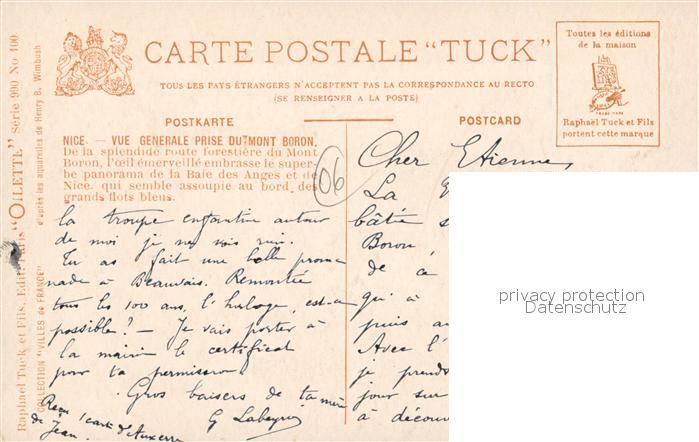 CARTE POSTALE "TUCK"
TOUS LES PAYS ÉTRANGERS N'ACCEPTENT PAS LA CORRESPONDANCE AU RECTO
(SE RENSEIGNER A LA POSTE)
POSTKARTE
POSTCARD
Toutes les éditions
de la maison
TRADE MARK
Raphaël Tuck et Fils
portent cette marque
Raphaël Tuck et Fils, Edit. Paris "OILETTE" Série 990 No 100
COLLECTION "VILLES de FRANCE" d'après les aquarelles de Henry B. Wimbush
NICE. - VUE GENERALE PRISE DU MONT BORON.
De la splendide route forestière du Mont
Boron, l'œil émerveillé embrasse le super-
be panorama de la Baie des Anges et de
Nice, qui semble assoupie au bord des
grands flots bleus.
06
Cher Etienne,
La
bâtie s
Boron
de c
qu'à
puis au
Avec l'
je prends
jour sur
à décou
la troupe enfantine autour
de moi je ne vois rien.
Tu as fait une belle prome
nade à Beauvais. Remontée
tous les 100 ans, l'horloge, est-ce
possible? - Je vais porter à
la mairie le certificat
pour ta permission.
Gros baisers de ta mère
G Labeyrie
Reçu 1 carte d'Auxerre
de Jean.
privacy protection
Datenschutz